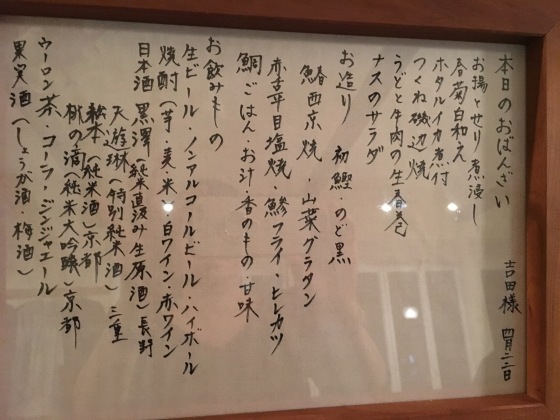 本日のおばんざい　吉田様　四月二二日
お揚とせり煮浸し
春菊白和え
ホタルイカ煮付
つくね磯辺焼
うどと牛肉の生春巻
ナスのサラダ
お造り　初鰹・のど黒
鰆西京焼・山菜グラタン
赤舌平目塩焼・鯵フライ・ヒレカツ
鯛ごはん・お汁・香のもの・甘味
お飲みもの
生ビール・ノンアルコールビール・ハイボール
焼酎（芋・麦・米）白ワイン・赤ワイン
日本酒　黒澤（純米直汲み生原酒）長野
天遊琳（特別純米酒）三重
松本（純米酒）京都
桃の滴（純米大吟醸）京都
ウーロン茶・コーラ・ジンジャエール
果実酒（しょうが酒・梅酒）